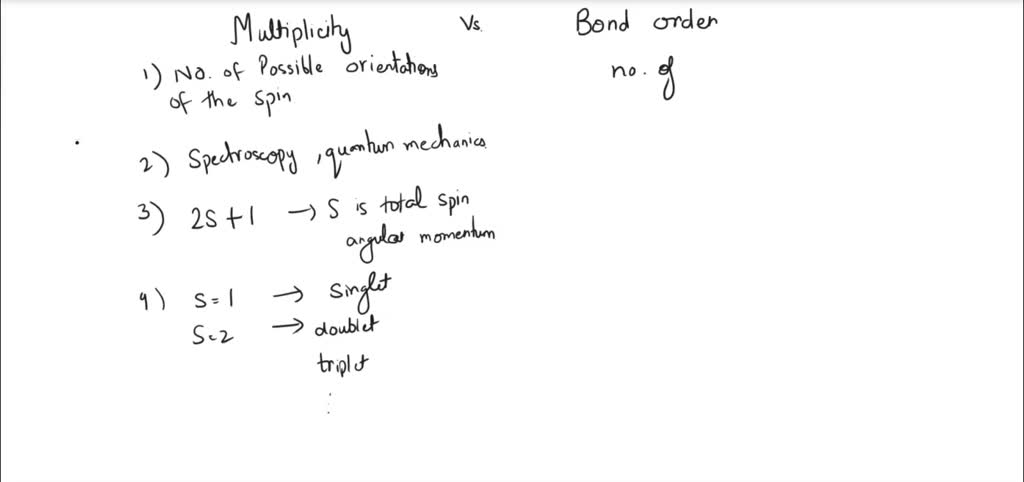 Multiplicity Vs. Bond order
1) No. of Possible orientations no. of
of the spin
2) Spectroscopy, quantum mechanics
3) 2S+1 → S is total spin
angular momentum
4) S=1 → Singlet
S=2 → doublet
triplet
⋮